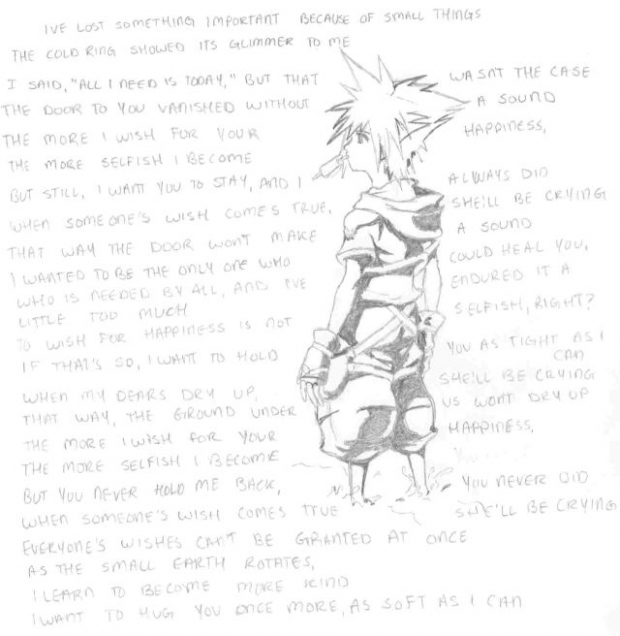 IVE LOST SOMETHING IMPORTANT BECAUSE OF SMALL THINGS
THE COLD RING SHOWED ITS GLIMMER TO ME
I SAID, "ALL I NEED IS TODAY," BUT THAT WASNT THE CASE
THE DOOR TO YOU VANISHED WITHOUT A SOUND
THE MORE I WISH FOR YOUR HAPPINESS,
THE MORE SELFISH I BECOME
BUT STILL, I WANT YOU TO STAY, AND I ALWAYS DID
WHEN SOMEONE'S WISH COMES TRUE, SHE'LL BE CRYING
THAT WAY THE DOOR WONT MAKE A SOUND
I WANTED TO BE THE ONLY ONE WHO COULD HEAL YOU,
WHO IS NEEDED BY ALL, AND I'VE ENDURED IT A
LITTLE TOO MUCH
TO WISH FOR HAPPINESS IS NOT SELFISH, RIGHT?
IF THAT'S SO, I WANT TO HOLD YOU AS TIGHT AS I CAN
WHEN MY DEARS DRY UP, SHE'LL BE CRYING
THAT WAY, THE GROUND UNDER US WONT DRY UP
THE MORE I WISH FOR YOUR HAPPINESS,
THE MORE SELFISH I BECOME
BUT YOU NEVER HOLD ME BACK, YOU NEVER DID
WHEN SOMEONE'S WISH COMES TRUE SHE'LL BE CRYING
EVERYONE'S WISHES CAN'T BE GRANTED AT ONCE
AS THE SMALL EARTH ROTATES,
I LEARN TO BECOME MORE KIND
I WANT TO HUG YOU ONCE MORE, AS SOFT AS I CAN